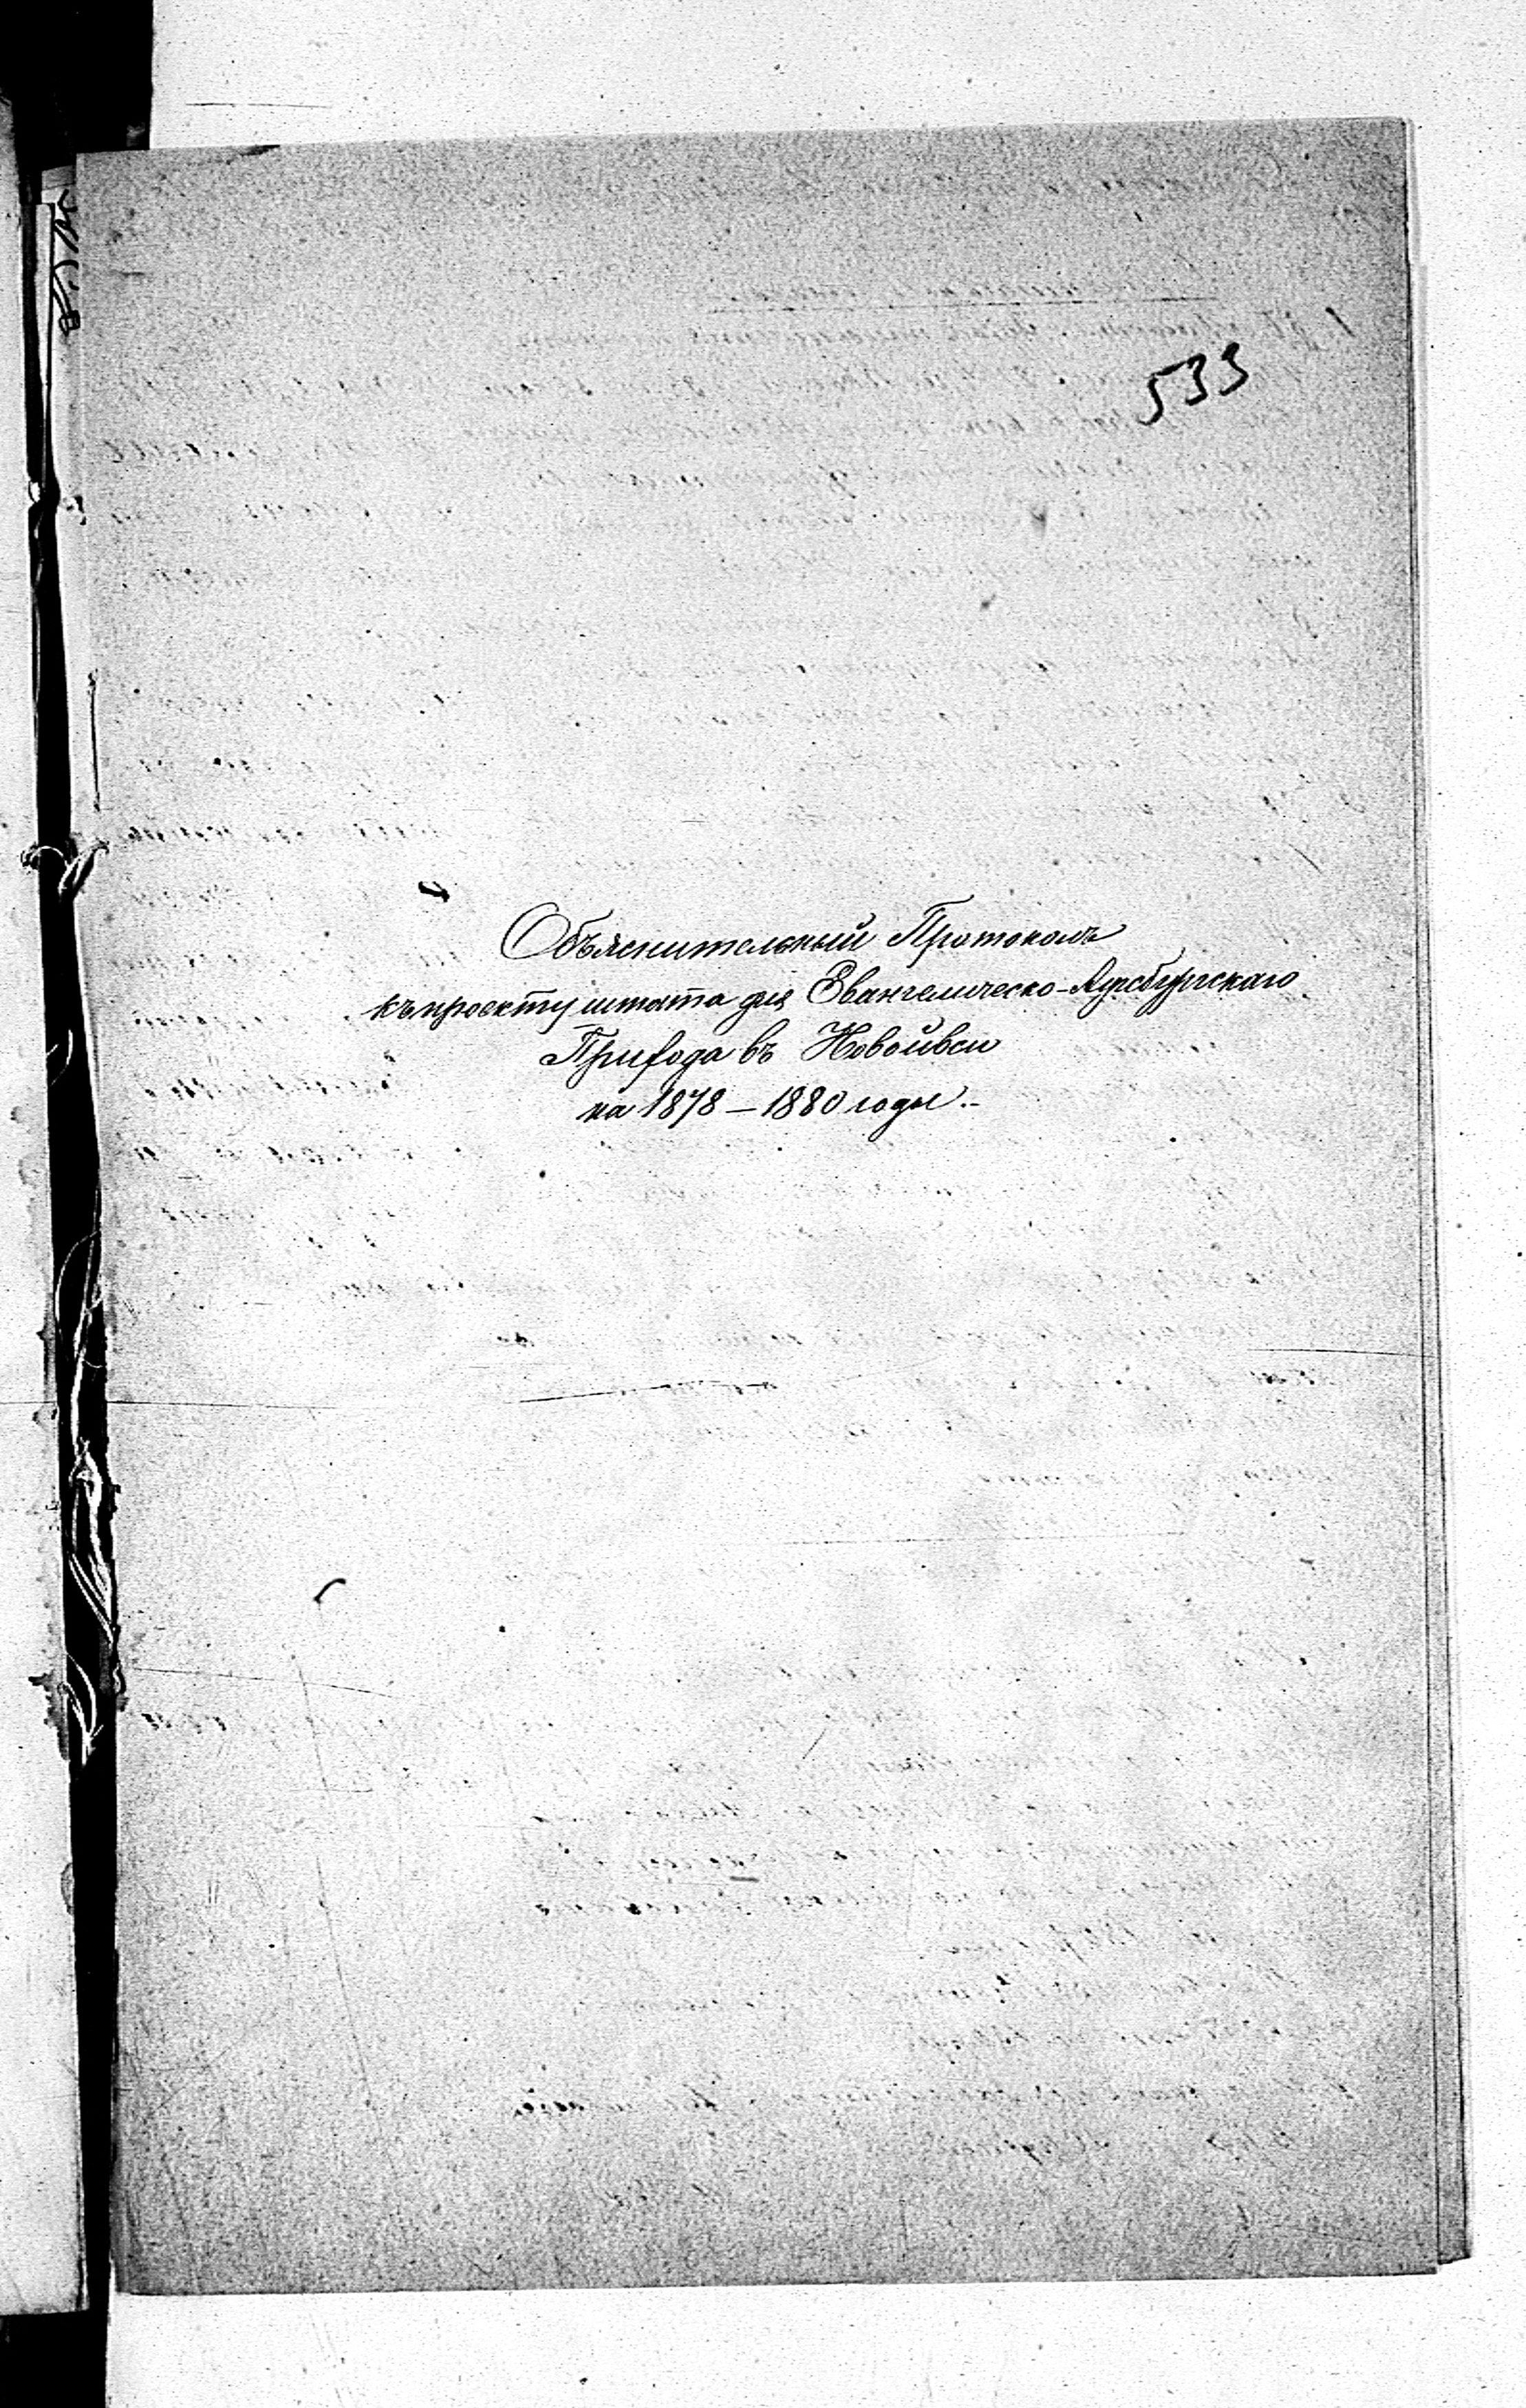 533
Объяснительный Протоколъ
къ проекту штата для Евангелическо-Аугсбургскаго
Прихода въ Новойвси
на 1878 – 1880 годы.